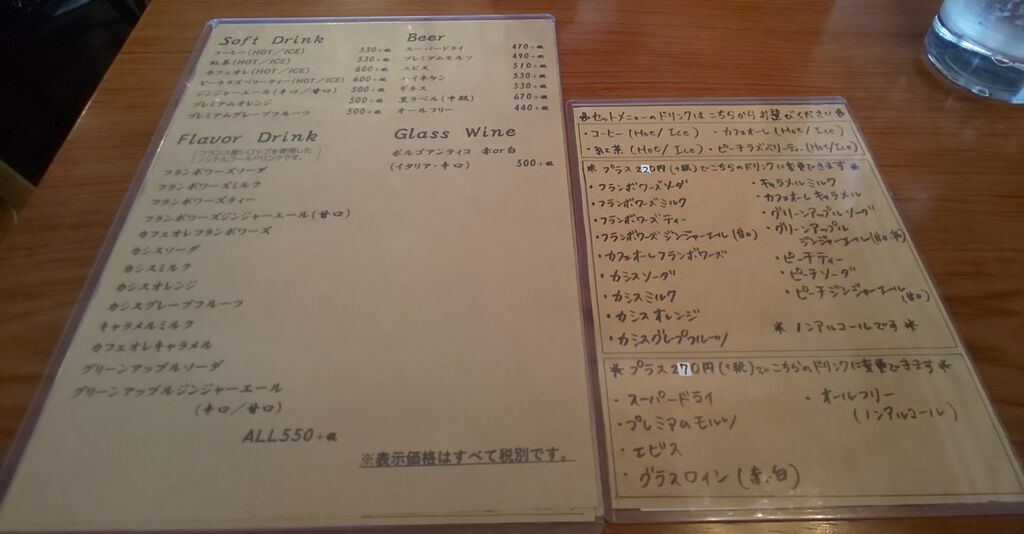 Soft Drink
コーヒー(HOT/ICE) 530+税
紅茶(HOT/ICE) 530+税
カフェオレ(HOT/ICE) 600+税
ピーチラズベリーティー(HOT/ICE) 600+税
ジンジャーエール(辛口/甘口) 500+税
プレミアムオレンジ 500+税
プレミアムグレープフルーツ 500+税
Beer
スーパードライ 470+税
プレミアムモルツ 490+税
エビス 510+税
ハイネケン 530+税
ギネス 530+税
黒ラベル(中瓶) 670+税
オールフリー 440+税
Flavor Drink
フランス産シロップを使用した
ノンアルコールドリンクです。
フランボワーズソーダ
フランボワーズミルク
フランボワーズティー
フランボワーズジンジャーエール(甘口)
カフェオレフランボワーズ
カシスソーダ
カシスミルク
カシスオレンジ
カシスグレープフルーツ
キャラメルミルク
カフェオレキャラメル
グリーンアップルソーダ
グリーンアップルジンジャーエール
(辛口/甘口)
ALL550+税
Glass Wine
ボルゴアンティコ 赤or白
(イタリア・辛口) 500+税
※表示価格はすべて税別です。
セットメニューのドリンクはこちらからお選びください
・コーヒー(Hot/Ice) ・カフェオーレ(Hot/Ice)
・紅茶(Hot/Ice) ・ピーチラズベリーティ(Hot/Ice)
* プラス220円(+税)でこちらのドリンクに変更できます *
・フランボワーズソーダ
・フランボワーズミルク
・フランボワーズティー
・フランボワーズジンジャーエール(甘口)
・カフェオーレフランボワーズ
・カシスソーダ
・カシスミルク
・カシスオレンジ
・カシスグレープフルーツ
・キャラメルミルク
・カフェオーレキャラメル
・グリーンアップルソーダ
・グリーンアップル
ジンジャーエール(甘口・辛)
・ピーチティー
・ピーチソーダ
・ピーチジンジャーエール
(甘口)
* ノンアルコールです *
* プラス270円(+税)でこちらのドリンクに変更できます *
・スーパードライ
・プレミアムモルツ
・エビス
・グラスワイン(赤・白)
・オールフリー
(ノンアルコール)